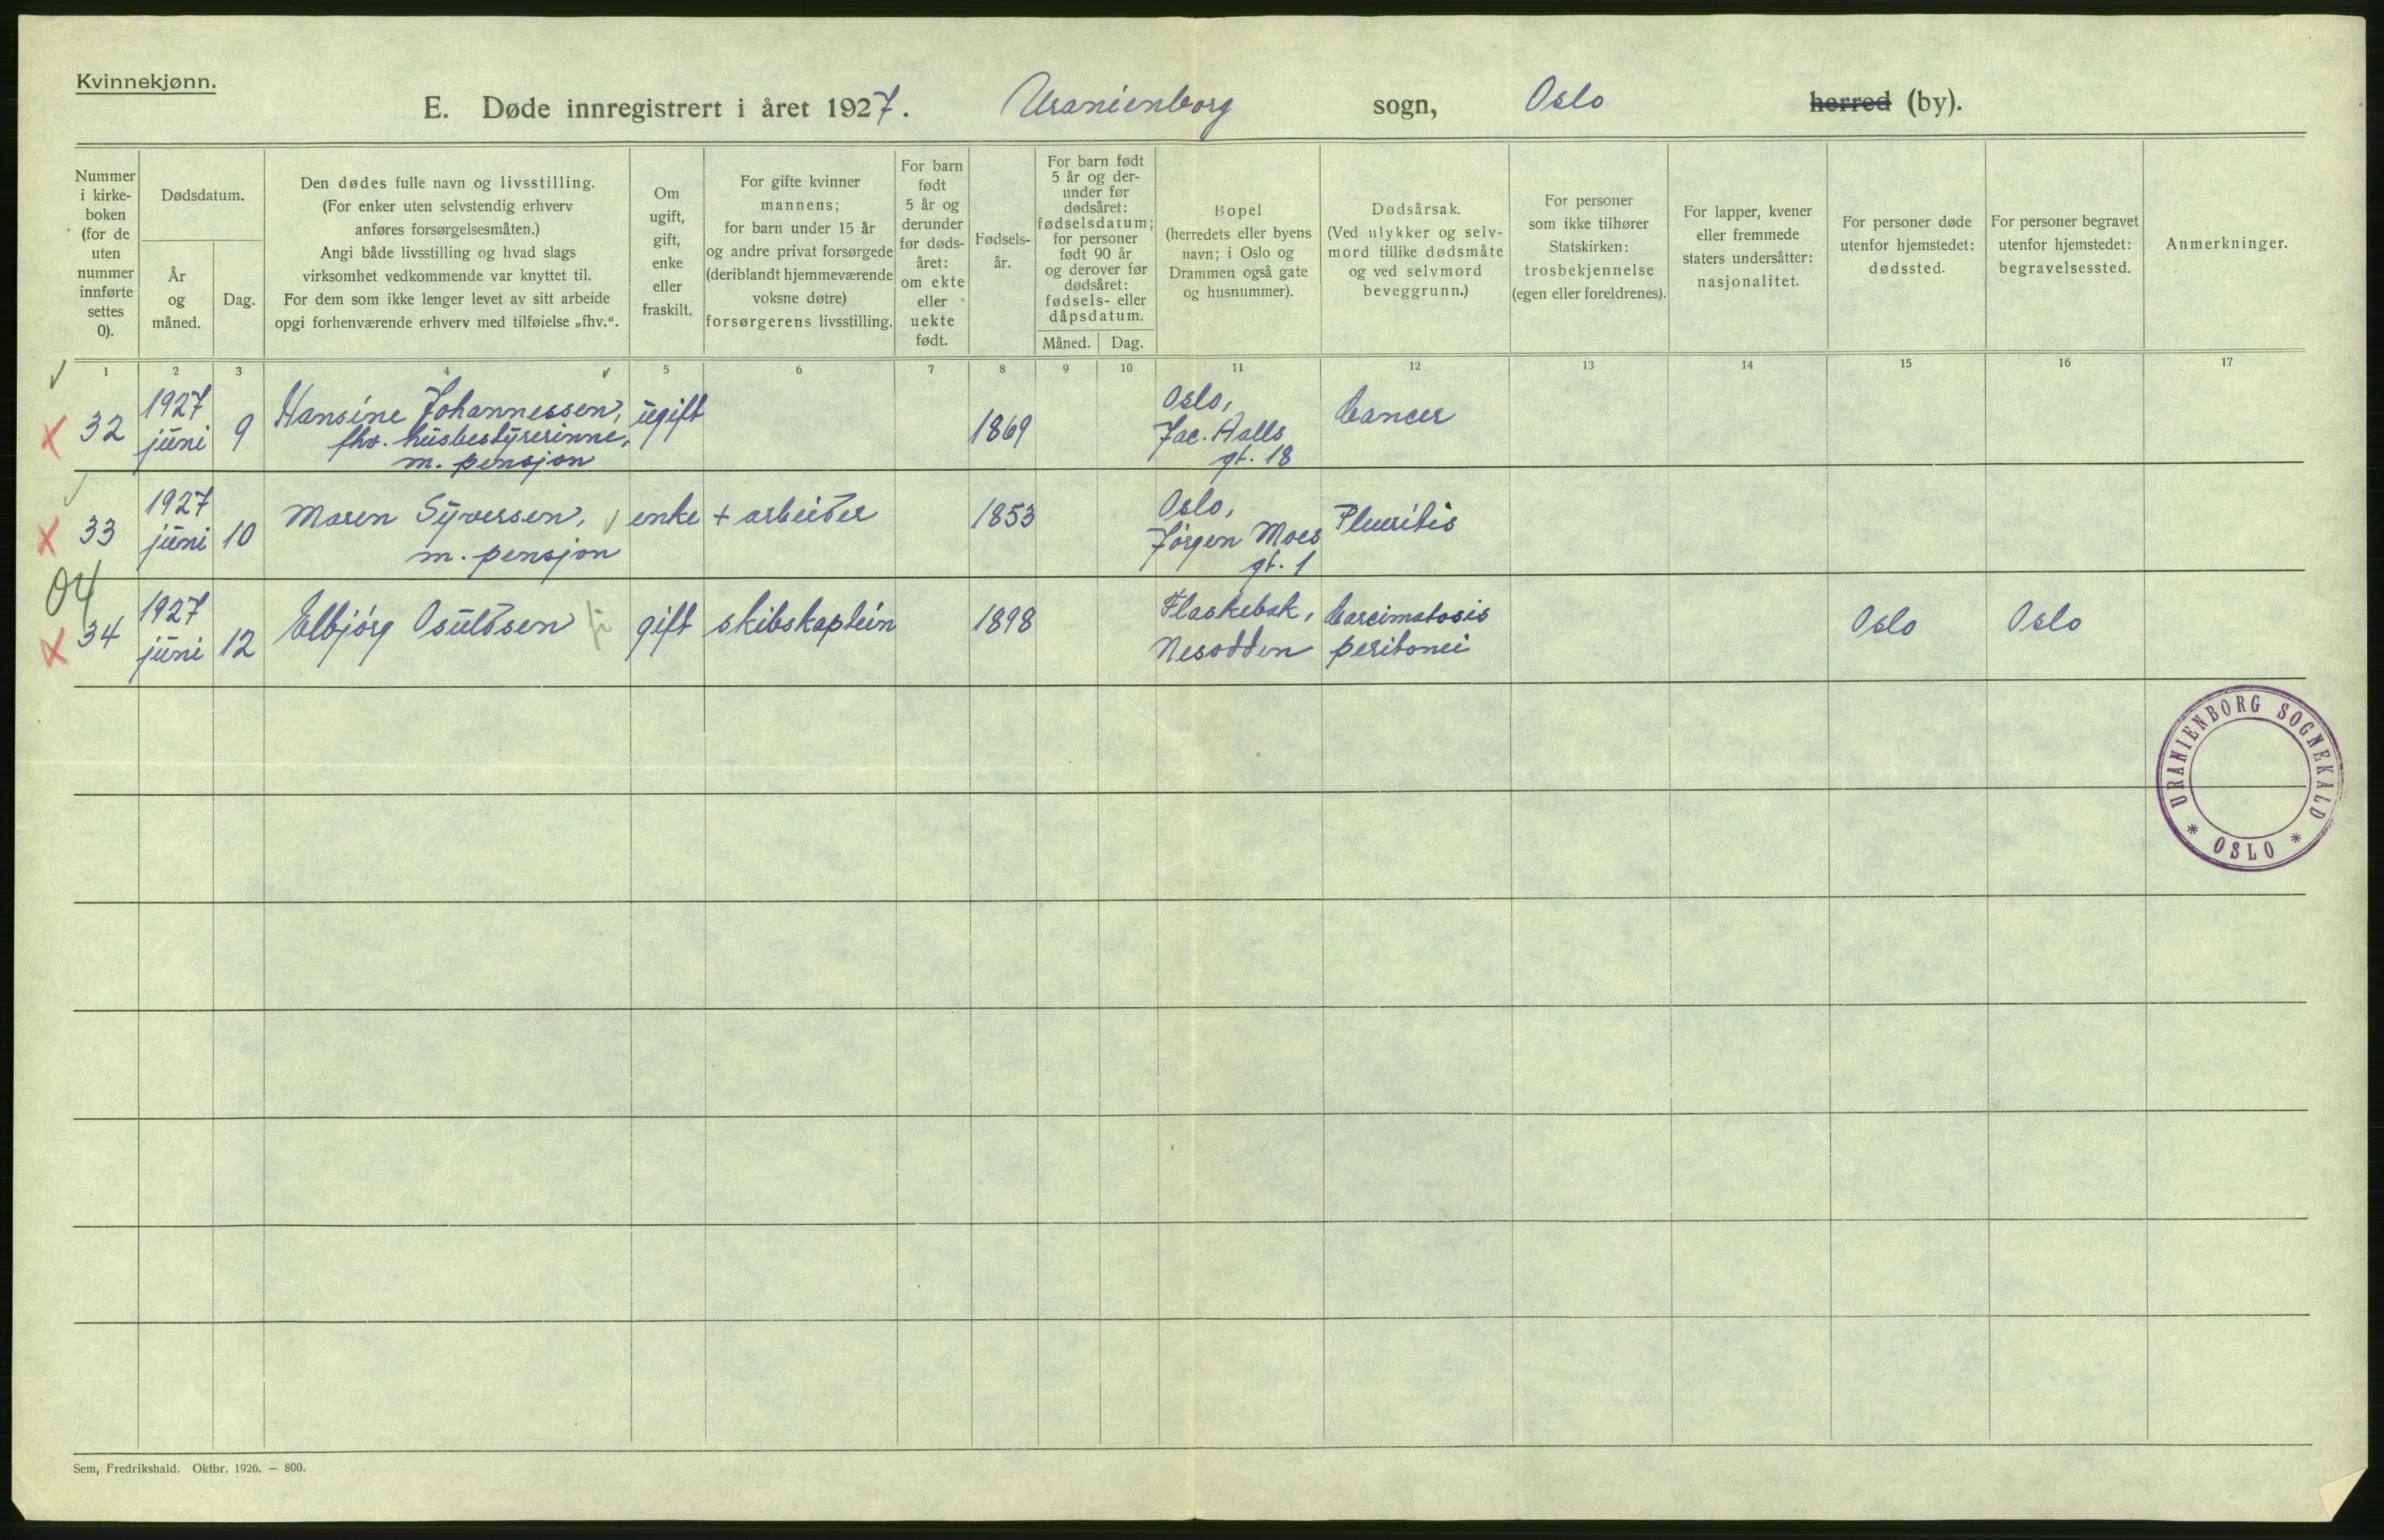 Kvinnekjønn.
E. Døde innregistrert i året 1927. Uranienborg sogn, Oslo herred (by).
Nummer
i kirke-
boken
(for de
uten
nummer
innførte
settes
0).
Dødsdatum.
År
og
måned.
Dag.
Den dødes fulle navn og livsstilling.
(For enker uten selvstendig erhverv
anføres forsørgelsesmåten.)
Angi både livsstilling og hvad slags
virksomhet vedkommende var knyttet til.
For dem som ikke lenger levet av sitt arbeide
opgi forhenværende erhverv med tilføielse „fhv.“.
Om
ugift,
gift,
enke
eller
fraskilt.
For gifte kvinner
mannens;
for barn under 15 år
og andre privat forsørgede
(deriblandt hjemmeværende
voksne døtre)
forsørgerens livsstilling.
For barn
født
5 år og
derunder
før døds-
året:
om ekte
eller
uekte
født.
Fødsels-
år.
For barn født
5 år og der-
under før
dødsåret:
fødselsdatum;
for personer
født 90 år
og derover før
dødsåret:
fødsels- eller
dåpsdatum.
Måned. Dag.
Bopel
(herredets eller byens
navn; i Oslo og
Drammen også gate
og husnummer).
Dødsårsak.
(Ved ulykker og selv-
mord tillike dødsmåte
og ved selvmord
beveggrunn.)
For personer
som ikke tilhører
Statskirken:
trosbekjennelse
(egen eller foreldrenes).
For lapper, kvener
eller fremmede
staters undersåtter:
nasjonalitet.
For personer døde
utenfor hjemstedet:
dødssted.
For personer begravet
utenfor hjemstedet:
begravelsessted.
Anmerkninger.
1 2 3 4 5 6 7 8 9 10 11 12 13 14 15 16 17
32
1927
juni
9
Hansine Johannessen,
fhv. husbestyrerinne,
m. pensjon
ugift
1869
Oslo,
Jac. Aalls
gt. 18
Cancer
33
1927
juni
10
Maren Syversen,
m. pensjon
enke
+ arbeider
1853
Oslo,
Jørgen Moes
gt. 1
Pleuritis
04
34
1927
juni
12
Elbjörg Osuldsen
gift
skibskaptein
1898
Flaskebæk,
Nesodden
Carcimatosis
peritonei
Oslo
Oslo
URANIENBORG SOGNEKALD
* OSLO *
Sem, Fredrikshald. Oktbr. 1926. — 800.